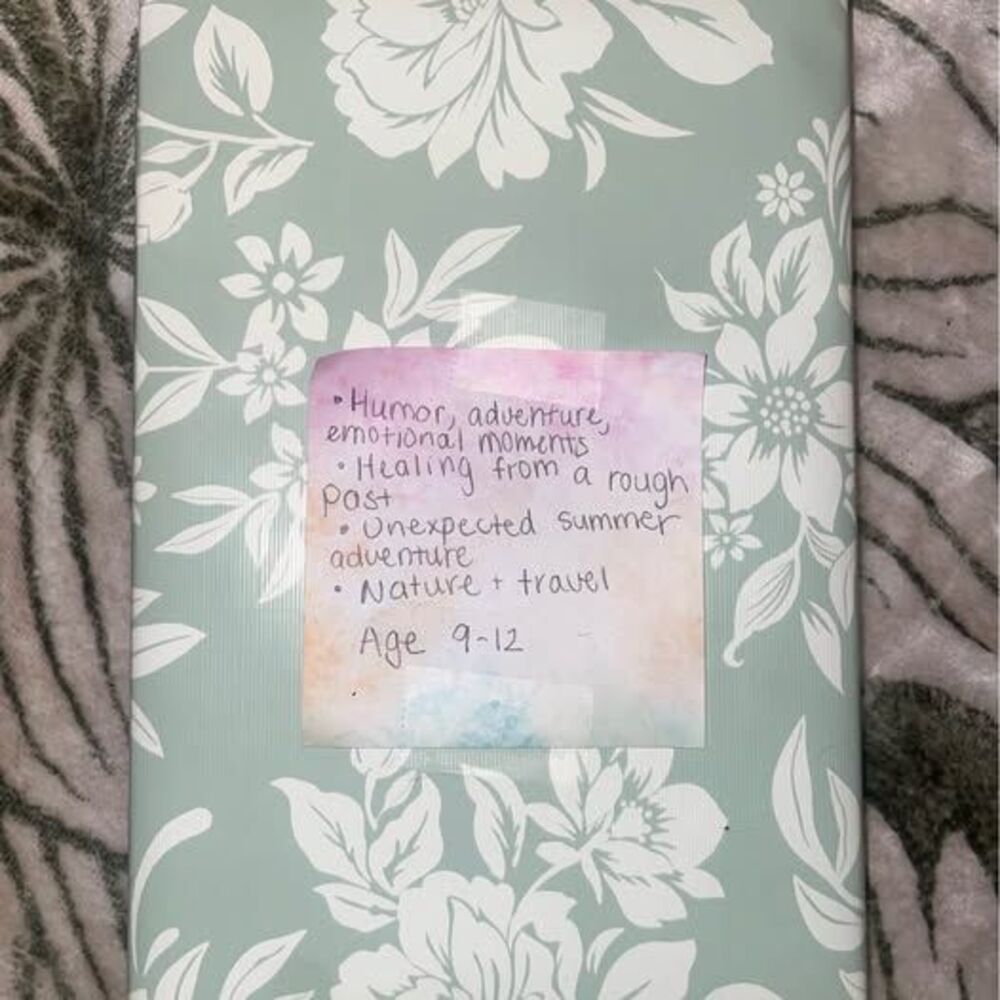 • Humor, adventure,
emotional moments
• Healing from a rough
Past
• Unexpected summer
adventure
• Nature + travel
Age 9-12